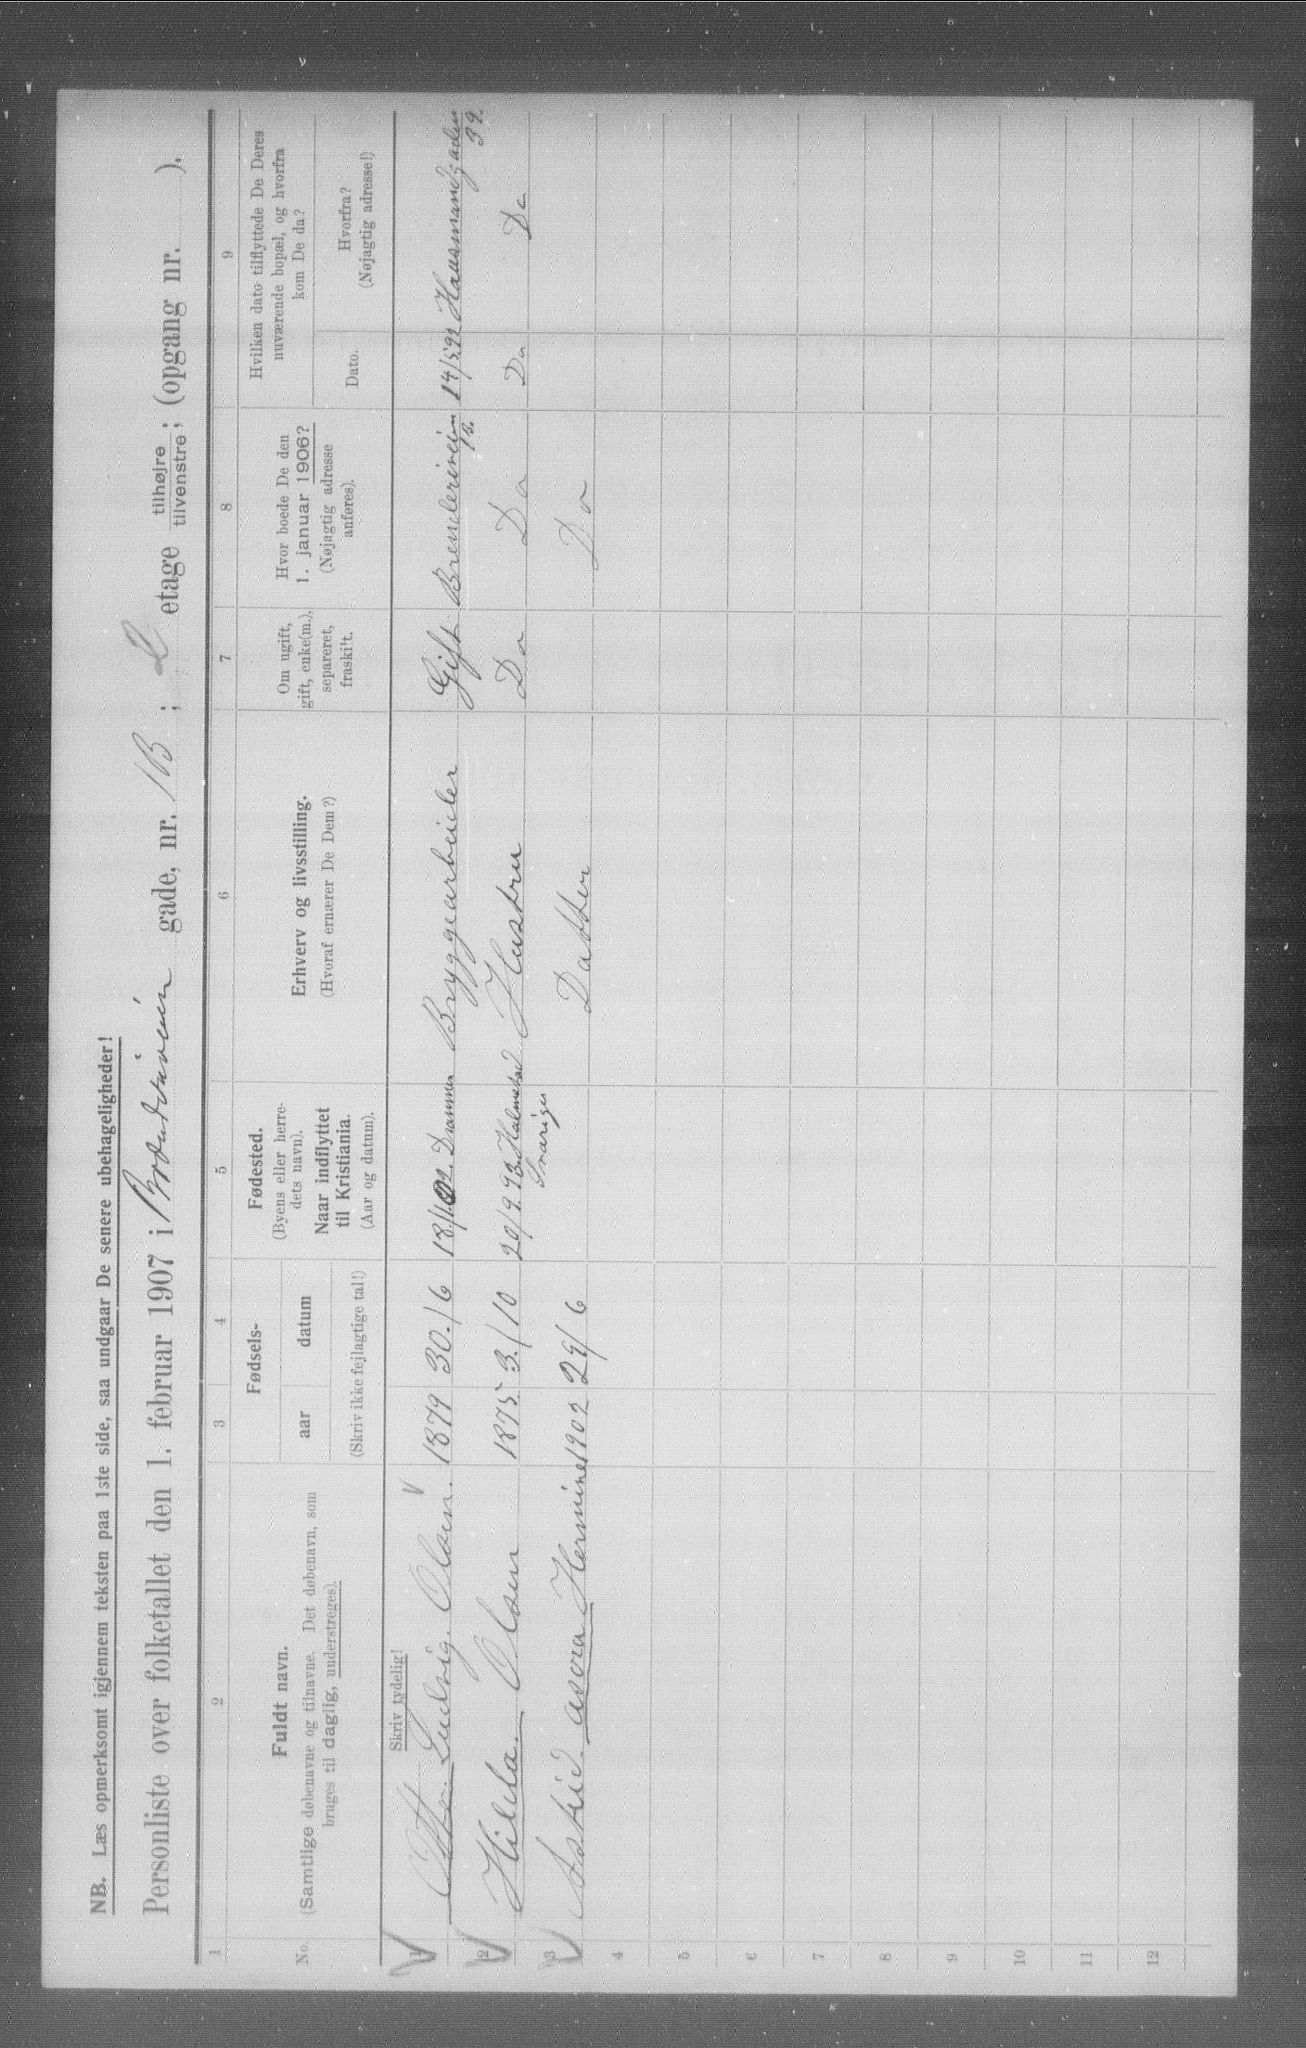 NB. Læs opmerksomt igjennem teksten paa 1ste side, saa undgaar De senere ubehageligheder!
Personliste over folketallet den 1. februar 1907 i Brænderiveien gade, nr. 1B ; 2 etage tilhøjre tilvenstre; (opgang nr. ).
1 2 3 4 5 6 7 8 9
No.
Fuldt navn.
(Samtlige døbenavne og tilnavne. Det døbenavn, som
bruges til daglig, understreges).
Fødsels-
aar datum
(Skriv ikke fejlagtige tal!)
Fødested.
(Byens eller herre-
dets navn).
Naar indflyttet
til Kristiania.
(Aar og datum).
Erhverv og livsstilling.
(Hvoraf ernærer De Dem?)
Om ugift,
gift, enke(m.),
separeret,
fraskilt.
Hvor boede De den
1. januar 1906?
(Nøjagtig adresse
anføres).
Hvilken dato tilflyttede De Deres
nuværende bopæl, og hvorfra
kom De da?
Dato.
Hvorfra?
(Nøjagtig adresse!)
Skriv tydelig!
1 Otto Ludvig Olsen. 1879 30./6 Drammen Bryggearbeider Gift Brenderivein 1B. Hausmandgaden 39.
2 Hilda Olsen 1875 3./10 20/9.93. Halmstad Sverige Hustru Do Do Do Do
3 Astrid Asora Hermine 1902 29/6 Datter Do
4
5
6
7
8
9
10
11
12